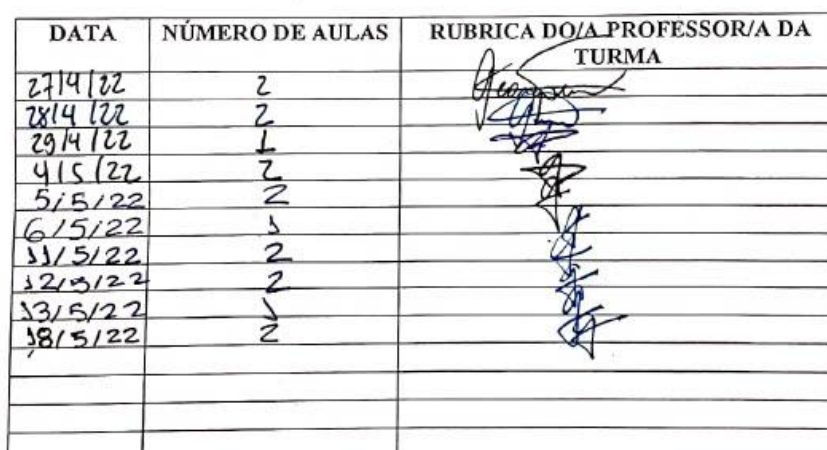 DATA NÚMERO DE AULAS RUBRICA DO/A PROFESSOR/A DA
TURMA
27/4/22 2
28/4/22 2
29/4/22 1
4/5/22 2
5/5/22 2
6/5/22 1
11/5/22 2
12/5/22 2
13/5/22 1
18/5/22 2